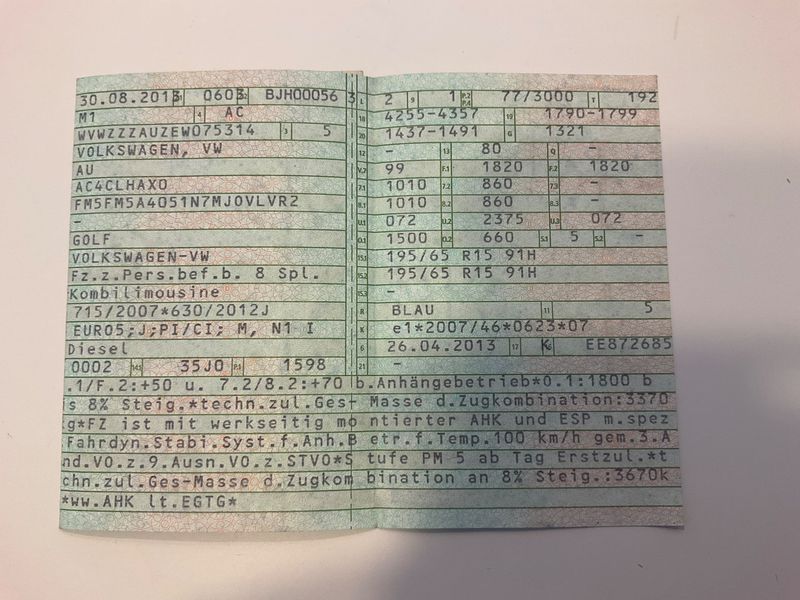 30.08.2013 0603 BJH00056 3
M1 4 AC
WVWZZZAUZEW075314 3 5
VOLKSWAGEN, VW
AU
AC4CLHAX0
FM5FM5A4051N7MJOVLVR2
-
GOLF
VOLKSWAGEN-VW
Fz.z.Pers.bef.b. 8 Spl.
Kombilimousine
715/2007*630/2012J
EURO5;J;PI/CI; M, N1 I
Diesel
0002 14.1 35J0 P.1 1598
L 2 9 1 P.2 P.4 77/3000 T 192
18 4255-4357 19 1790-1799
20 1437-1491 G 1321
12 - 13 80 Q -
V.7 99 F.1 1820 F.2 1820
7.1 1010 7.2 860 7.3 -
8.1 1010 8.2 860 8.3 -
U.1 072 U.2 2375 U.3 072
O.1 1500 O.2 660 S.1 5 S.2 -
15.1 195/65 R15 91H
15.2 195/65 R15 91H
15.3 -
R BLAU 11 5
K e1*2007/46*0623*07
6 26.04.2013 17 K 16 EE872685
21 -
.1/F.2:+50 u. 7.2/8.2:+70 b.Anhängebetrieb*0.1:1800 b
s 8% Steig.*techn.zul.Ges-Masse d.Zugkombination:3370
g*FZ ist mit werkseitig montierter AHK und ESP m.spez
Fahrdyn.Stabi.Syst.f.Anh.Betr.f.Temp.100 km/h gem.3.A
nd.VO.z.9.Ausn.VO.z.STVO*Stufe PM 5 ab Tag Erstzul.*t
chn.zul.Ges-Masse d.Zugkombination an 8% Steig.:3670k
*ww.AHK lt.EGTG*